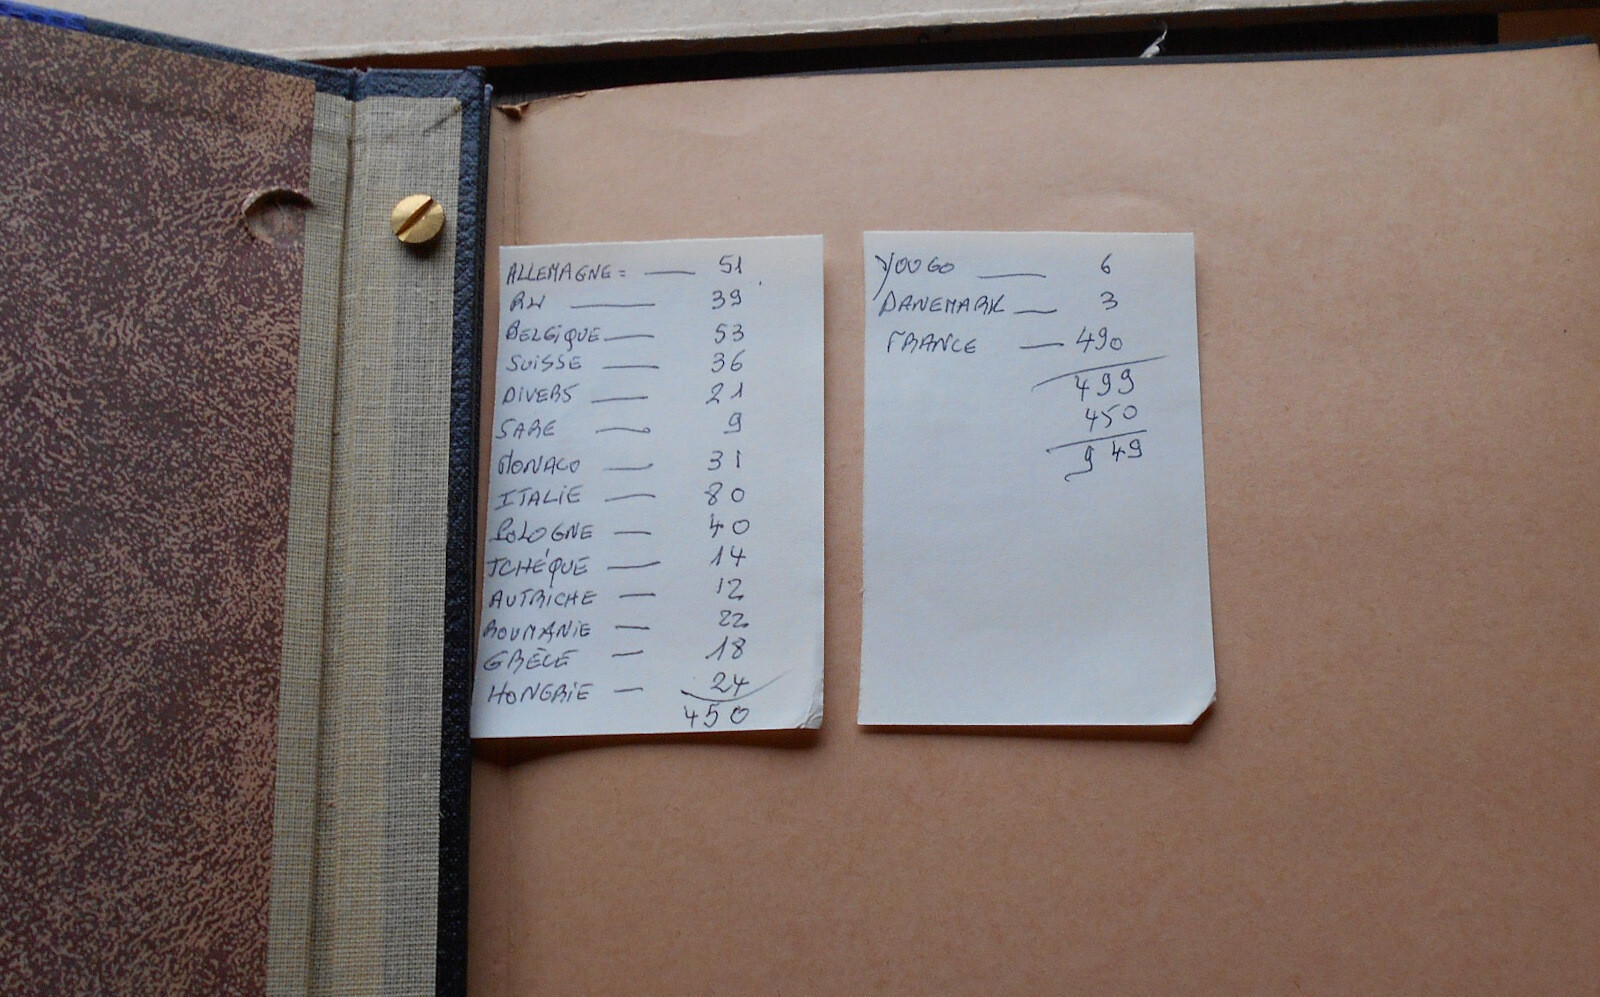 ALLEMAGNE = — 51
RU — 39
BELGIQUE — 53
SUISSE — 36
DIVERS — 21
SARE — 9
MONACO — 31
ITALIE — 80
POLOGNE — 40
TCHÉQUE — 14
AUTRICHE — 12
ROUMANIE — 22
GRÈCE — 18
HONGRIE — 24
450
YOUGO — 6
DANEMARK — 3
FRANCE — 490
499
450
949